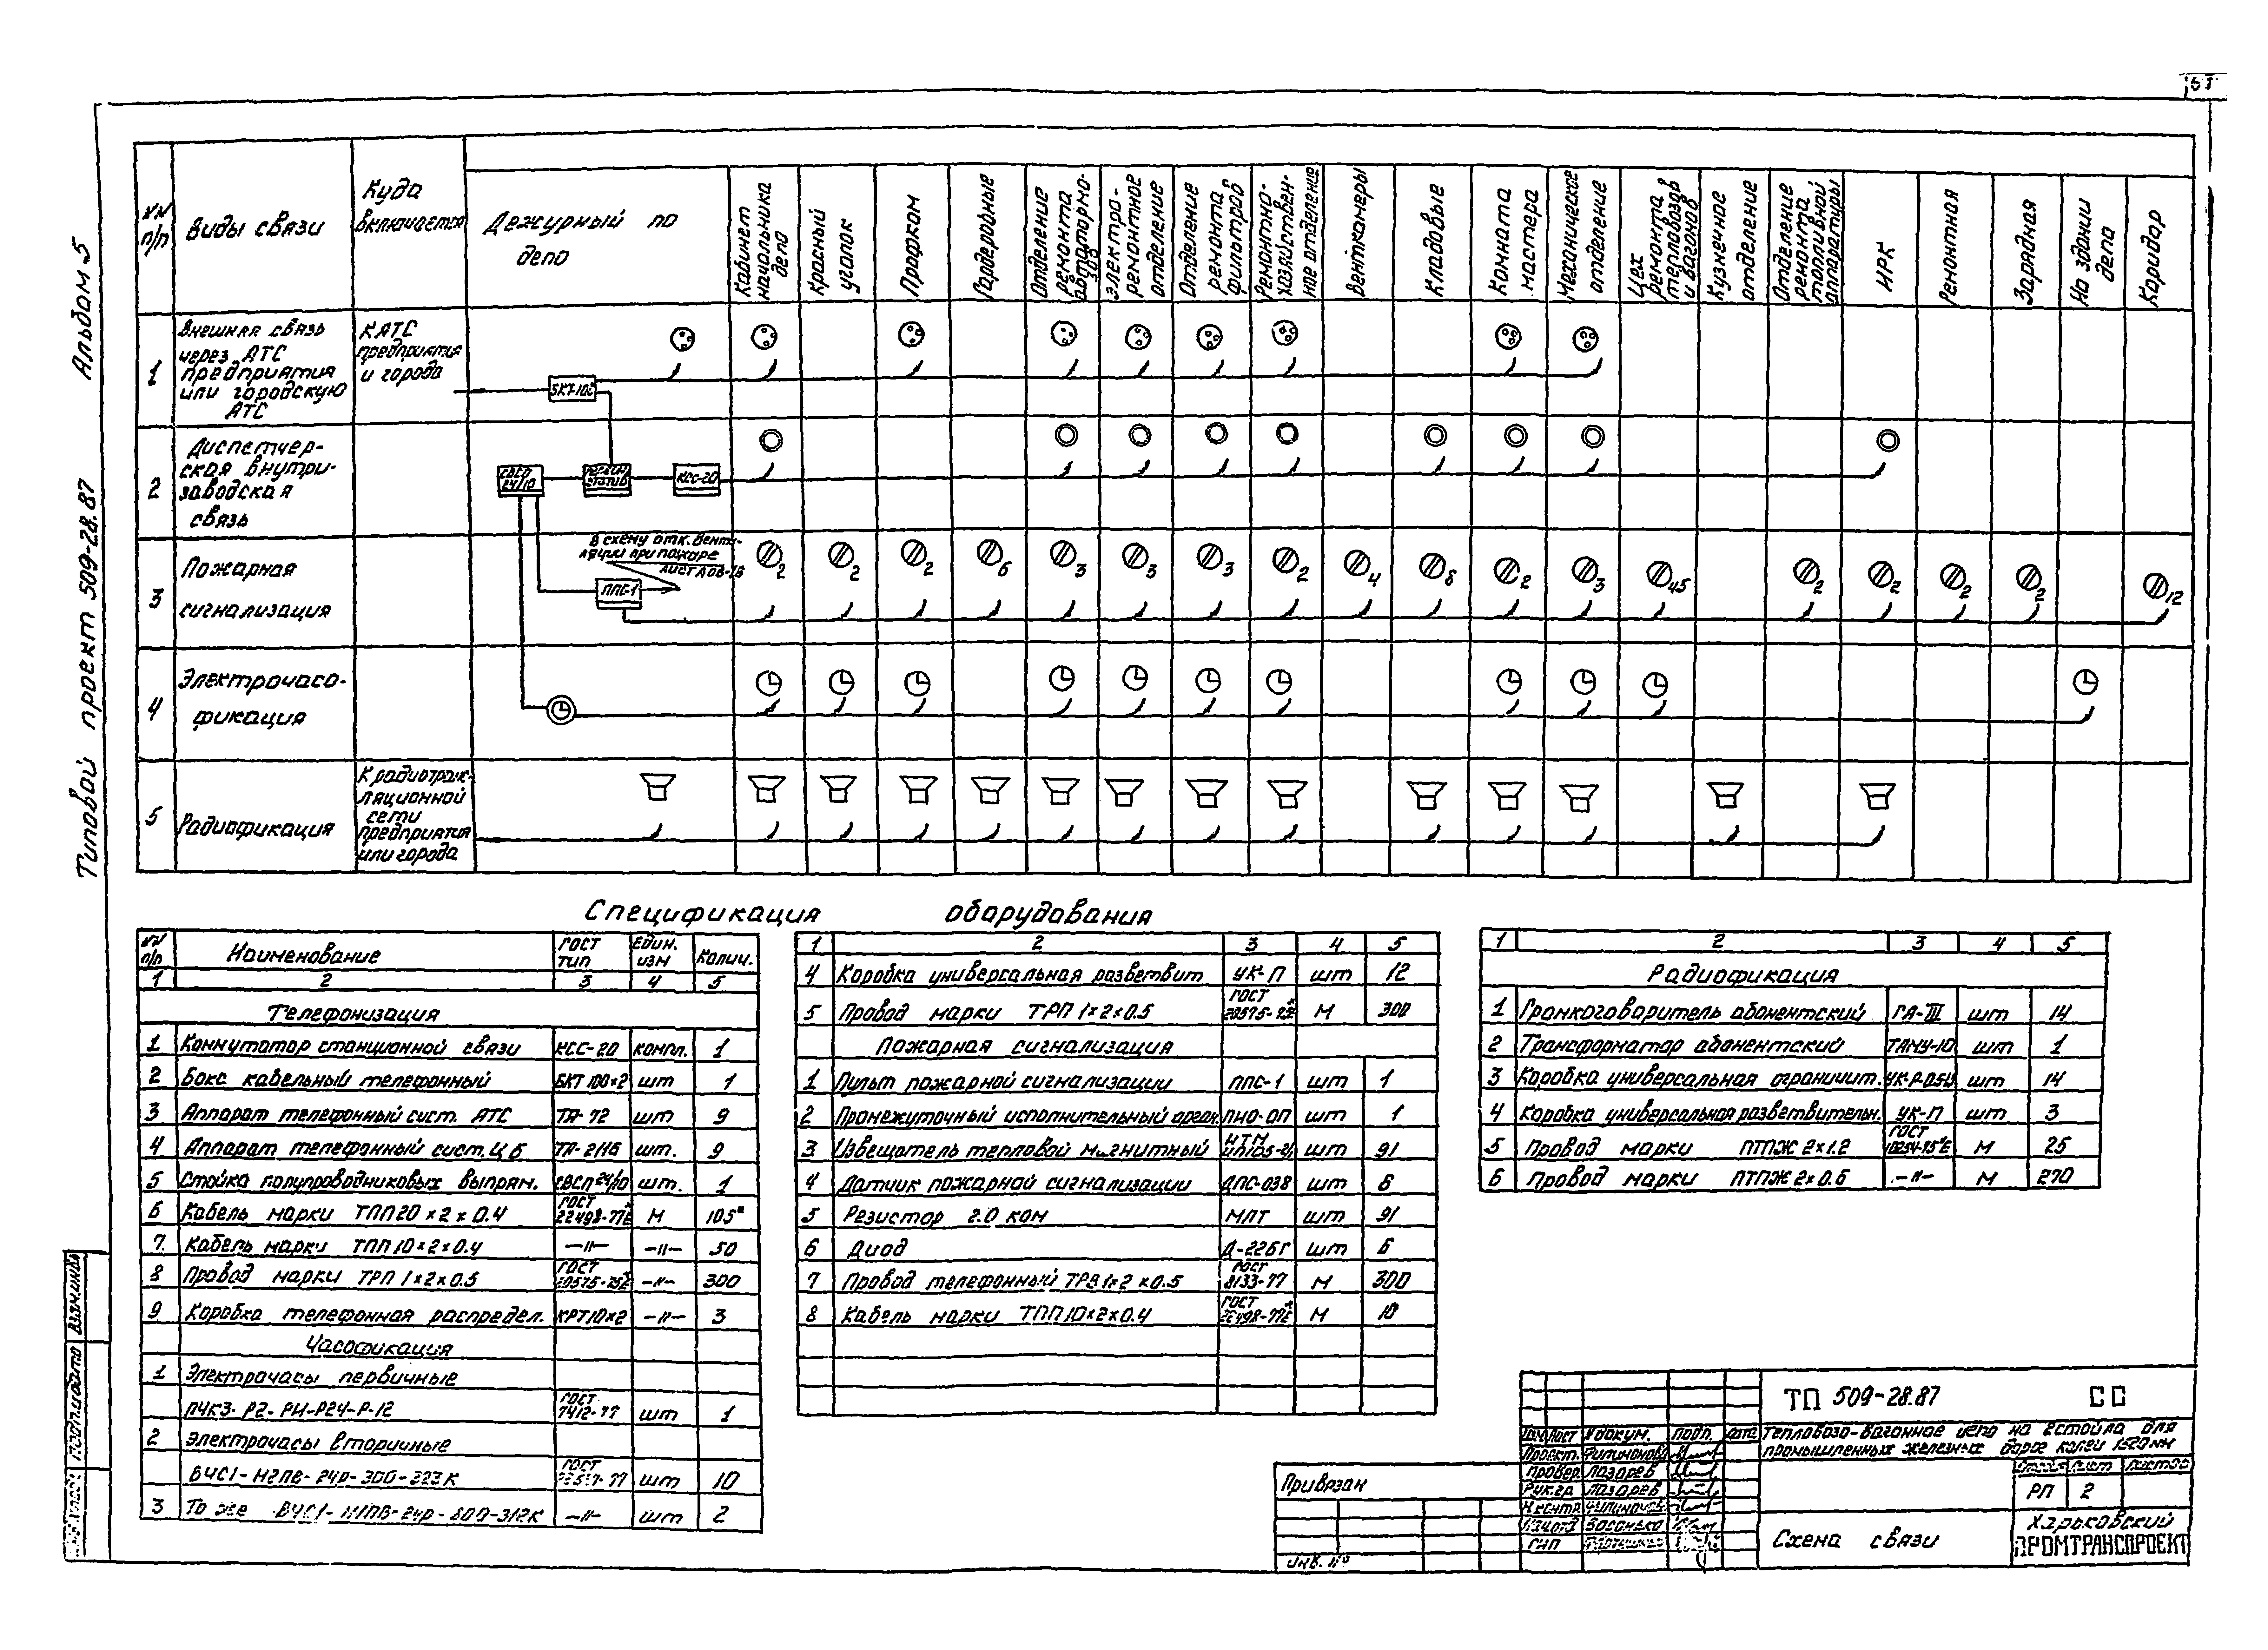 Альбом 5
Типовой проект 509-28.87
NN п/п
Виды связи
Куда включается
Дежурный по депо
Кабинет начальника депо
Красный уголок
Профком
Гардеробные
Отделение ремонта
Электроремонтное отделение
Отделение ремонта фильтров
Ремонтно-хозяйственное отделение
Венткамеры
Кладовые
Комната мастера
Механическое отделение
Цех ремонта тепловозов и вагонов
Кузнечное отделение
Отделение ремонта топливной аппаратуры
ИРК
Ремонтная
Зарядная
На здании депо
Коридор
1
Внешная связь
через АТС
предприятия
или городскую
АТС
КАТС
предприятия
и города
2
Диспетчер-
ская внутри-
заводская
связь
24/10
КСС-20
3
Пожарная
сигнализация
В схему отк. венти-
ляции при пожаре
ППС-1
2 2 2 6 3 3 3 2 4 8 2 3 45 2 2 2 2 12
4
Электрочасо-
фикация
5
Радиофикация
К радиотранс-
ляционной
сети
предприятия
или города
Спецификация оборудования
NN п/п Наименование ГОСТ тип Един. изм Колич.
1 2 3 4 5
Телефонизация
1 Коммутатор станционной связи КСС-20 компл. 1
2 Бокс кабельный телефонный БКТ 100×2 шт 1
3 Аппарат телефонный сист. АТС ТА-72 шт 9
4 Аппарат телефонный сист. ЦБ ТА-2116 шт. 9
5 Стойка полупроводниковых выпрям. 24/10 шт. 1
6 Кабель марки ТПП 20×2×0.4 ГОСТ 22498-77Е М 105
7. Кабель марки ТПП 10×2×0.4 —"— —"— 50
8 Провод марки ТРП 1×2×0.5 ГОСТ —"— 300
9 Коробка телефонная распредел. КРТ 10×2 —"— 3
Часофикация
1 Электрочасы первичные
ПЧК3-Р2-РН-Р24-Р-12 ГОСТ 7412-77 шт 1
2 Электрочасы вторичные
ВЧС1-М2ПВ-24р-300-323К ГОСТ шт 10
3 То же —"— шт 2
1 2 3 4 5
4 Коробка универсальная разветвит УК-П шт 12
5 Провод марки ТРП 1×2×0.5 ГОСТ М 300
Пожарная сигнализация
1 Пульт пожарной сигнализации ППС-1 шт 1
2 Промежуточный исполнительный орган. ПИО-ОП шт 1
3 Извещатель тепловой магнитный шт 91
4 Датчик пожарной сигнализации ДПС-038 шт 6
5 Резистор 2.0 ком МЛТ шт 91
6 Диод Д-226Г шт 6
7 Провод телефонный ТРВ 1×2×0.5 ГОСТ 8133-77 М 300
8 Кабель марки ТПП 10×2×0.4 ГОСТ 22498-77Е М 10
1 2 3 4 5
Радиофикация
1 Громкоговоритель абонентский ГА-III шт 14
2 Трансформатор абонентский ТАМУ-10 шт 1
3 Коробка универсальная ограничит. шт 14
4 Коробка универсальная разветвительн. УК-П шт 3
5 Провод марки ПТПЖ 2×1.2 ГОСТ М 25
6 Провод марки ПТПЖ 2×0.6 —"— М 270
ТП 509-28.87 СС
Изм Лист N докум. подп. Дата
Проект. Филимонова
Провер Лазарев
Рук.гр Лазарев
Н.контр.
Нач.отд
ГИП
Тепловозо-вагонное депо на 2 стойла для
промышленных железных дорог колеи 1520 мм
Стадия Лист Листов
РП 2
Схема связи
Харьковский
ПРОМТРАНСПРОЕКТ
Привязан
ИНВ. N°
Взам.инв.
Подп. и дата